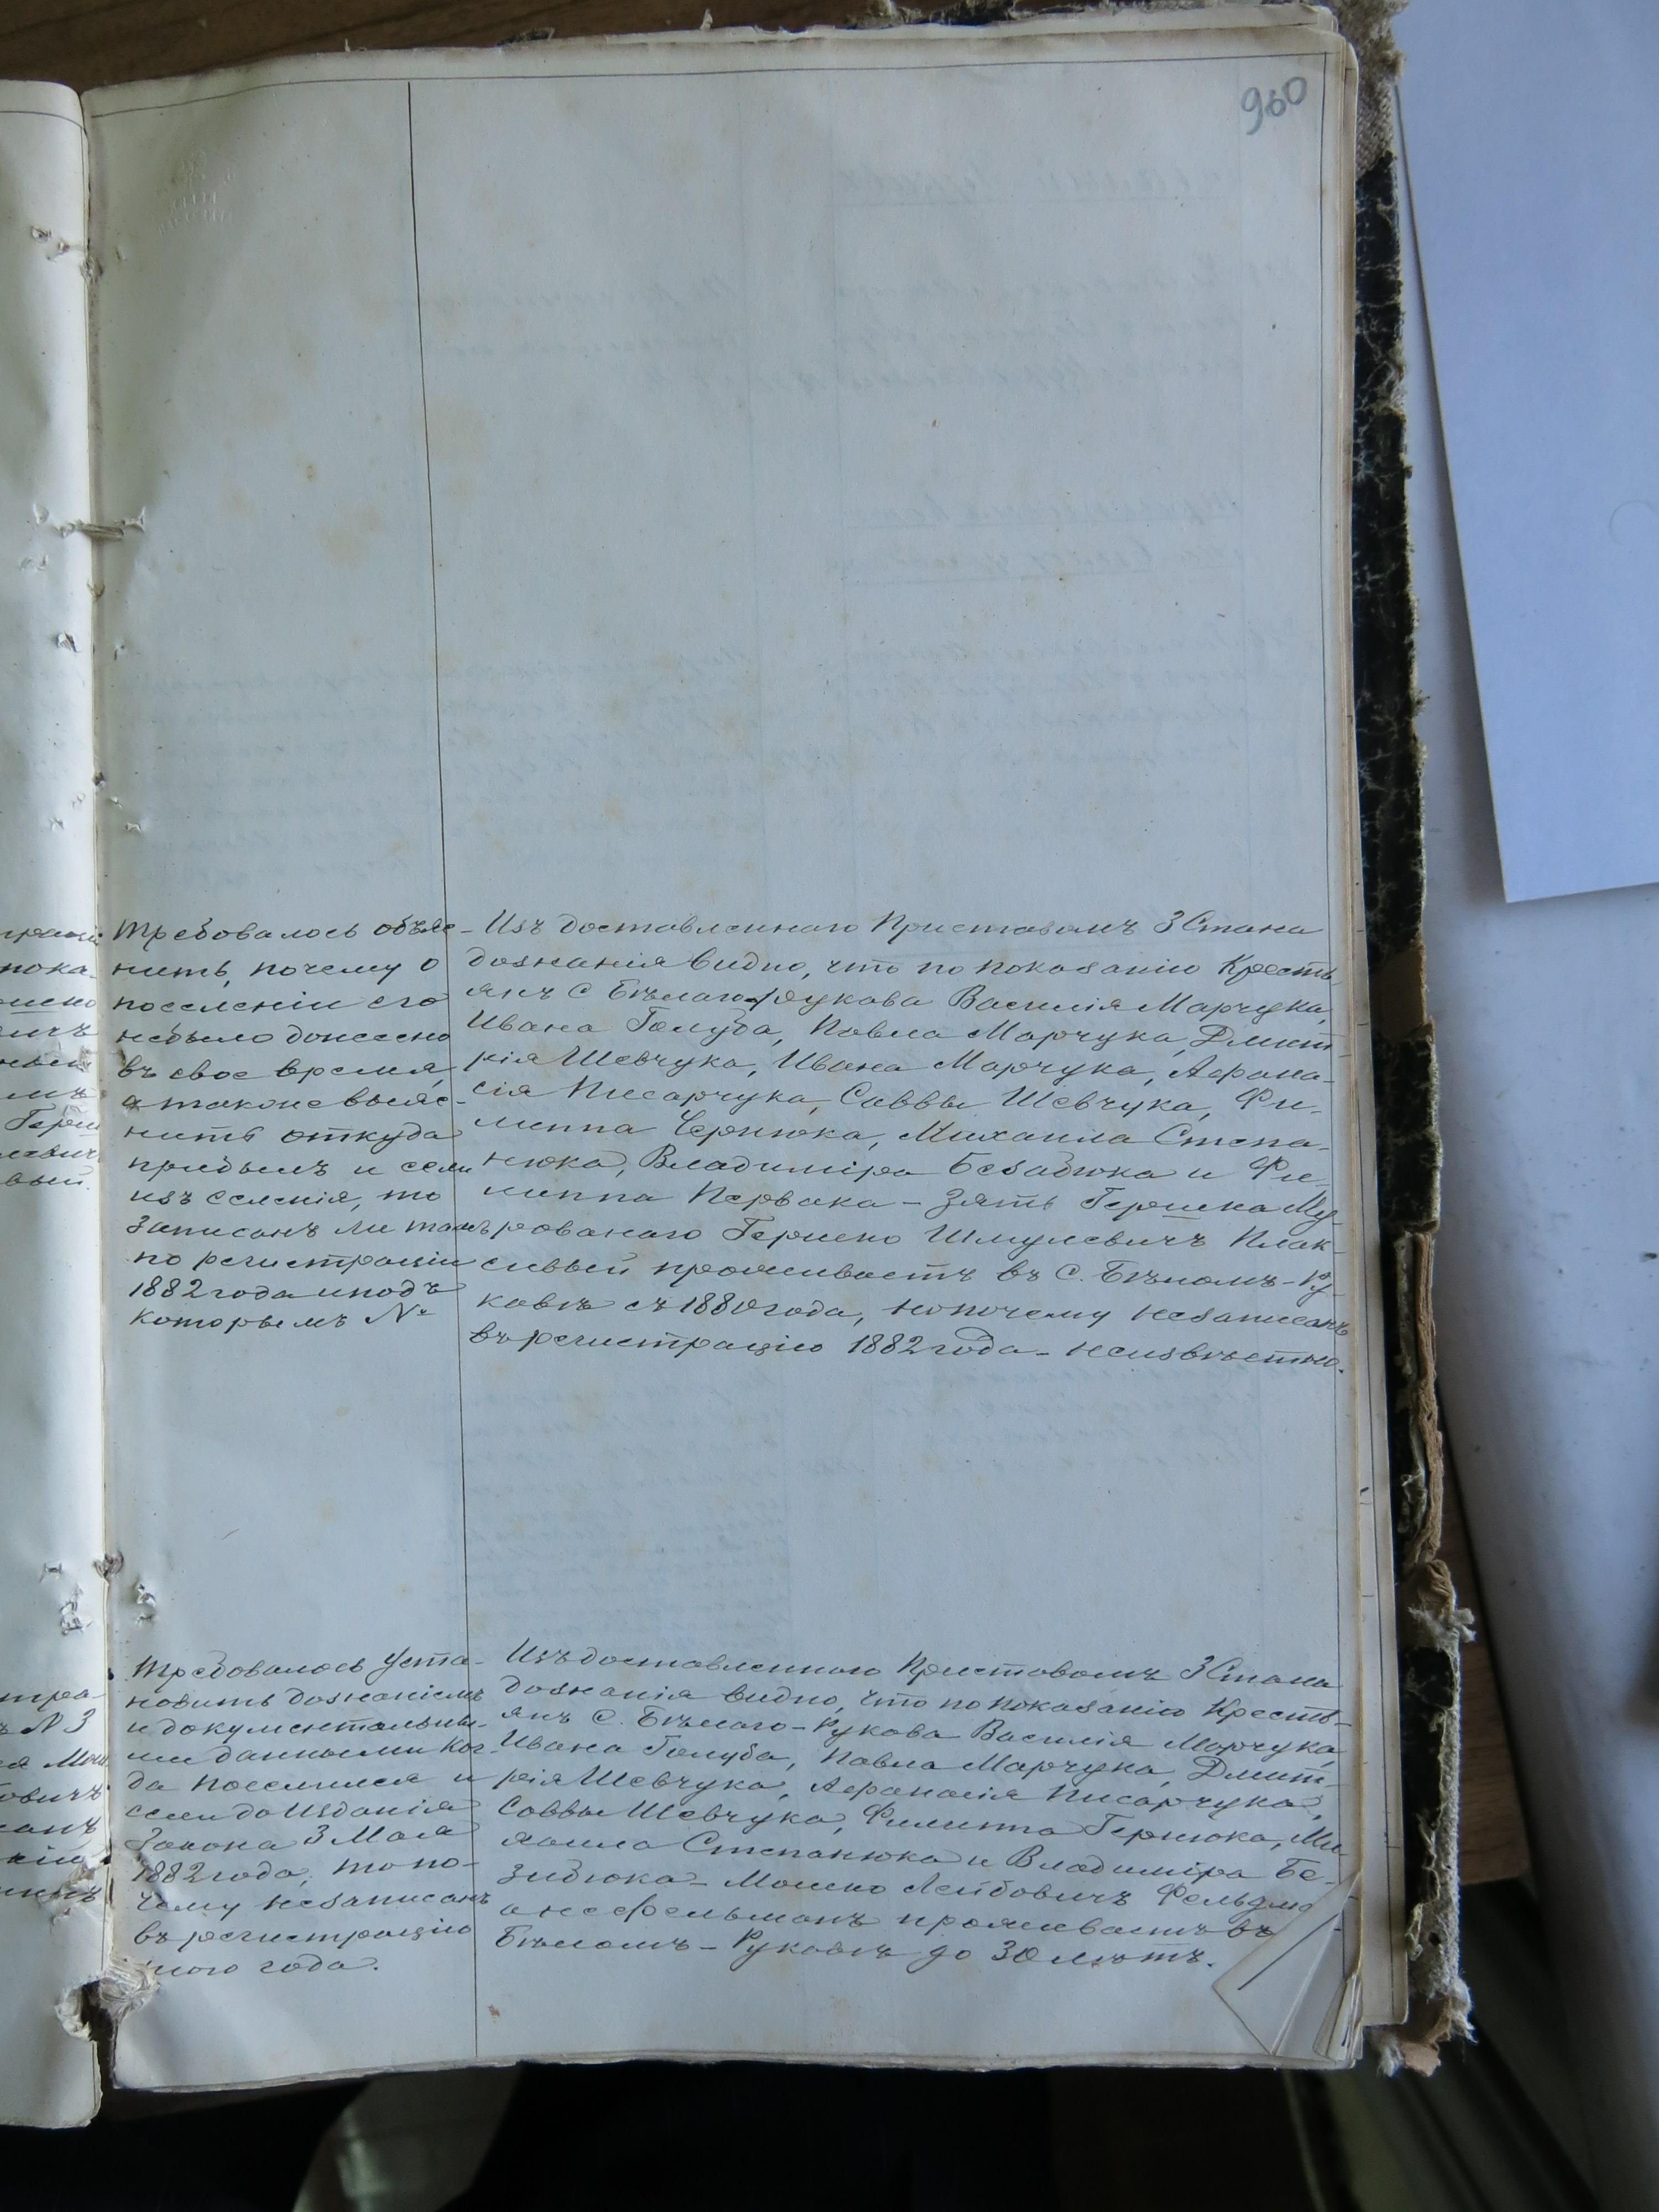 960
Требовалось объяс-
нить, почему о
поселеніи его
небыло донесено
въ свое время,
а также выяс-
нить откуда
прибылъ и если
изъ селенія, то
записанъ ли тамъ
по регистраціи
1882 года и подъ
которымъ №
Изъ доставленнаго Приставомъ 3 Стана
дознанія видно, что по показанію Кресть-
янъ с Бѣлаго-Рукова Василія Марчука,
Ивана Голуба, Павла Марчука, Дмит-
рія Шевчука, Ивана Марчука, Афана-
сія Писарчука, Саввы Шевчука, Фи-
липпа Чернюка, Михаила Степа-
нюка, Владиміра Безабюка и Фи-
липпа Первака – зять Гершка Му-
рованаго Гершко Шмулевичъ Плак-
сивый проживаетъ въ С. Бѣломъ-Ру-
кавѣ съ 1880 года, но почему незаписанъ
въ регистрацію 1882 года – неизвѣстно.
Требовалось уста-
новить дознаніемъ
и документальны-
ми данными ког-
да поселился и
если до изданія
Закона 3 Мая
1882 года, то по-
чему незаписанъ
въ регистрацію
года.
Изъ доставленнаго Приставомъ 3 Стана
дознанія видно, что по показанію Кресть-
янъ С. Бѣлаго-Рукова Василія Марчука,
Ивана Голуба, Павла Марчука, Дмит-
рія Шевчука, Афанасія Писарчука,
Саввы Шевчука, Филиппа Чернюка, Ми-
хаила Степанюка и Владиміра Бе-
забюка – Мошко Лейбовичъ
а не Фельманъ проживаетъ въ
Бѣломъ-Рукавѣ до 30 лѣтъ.